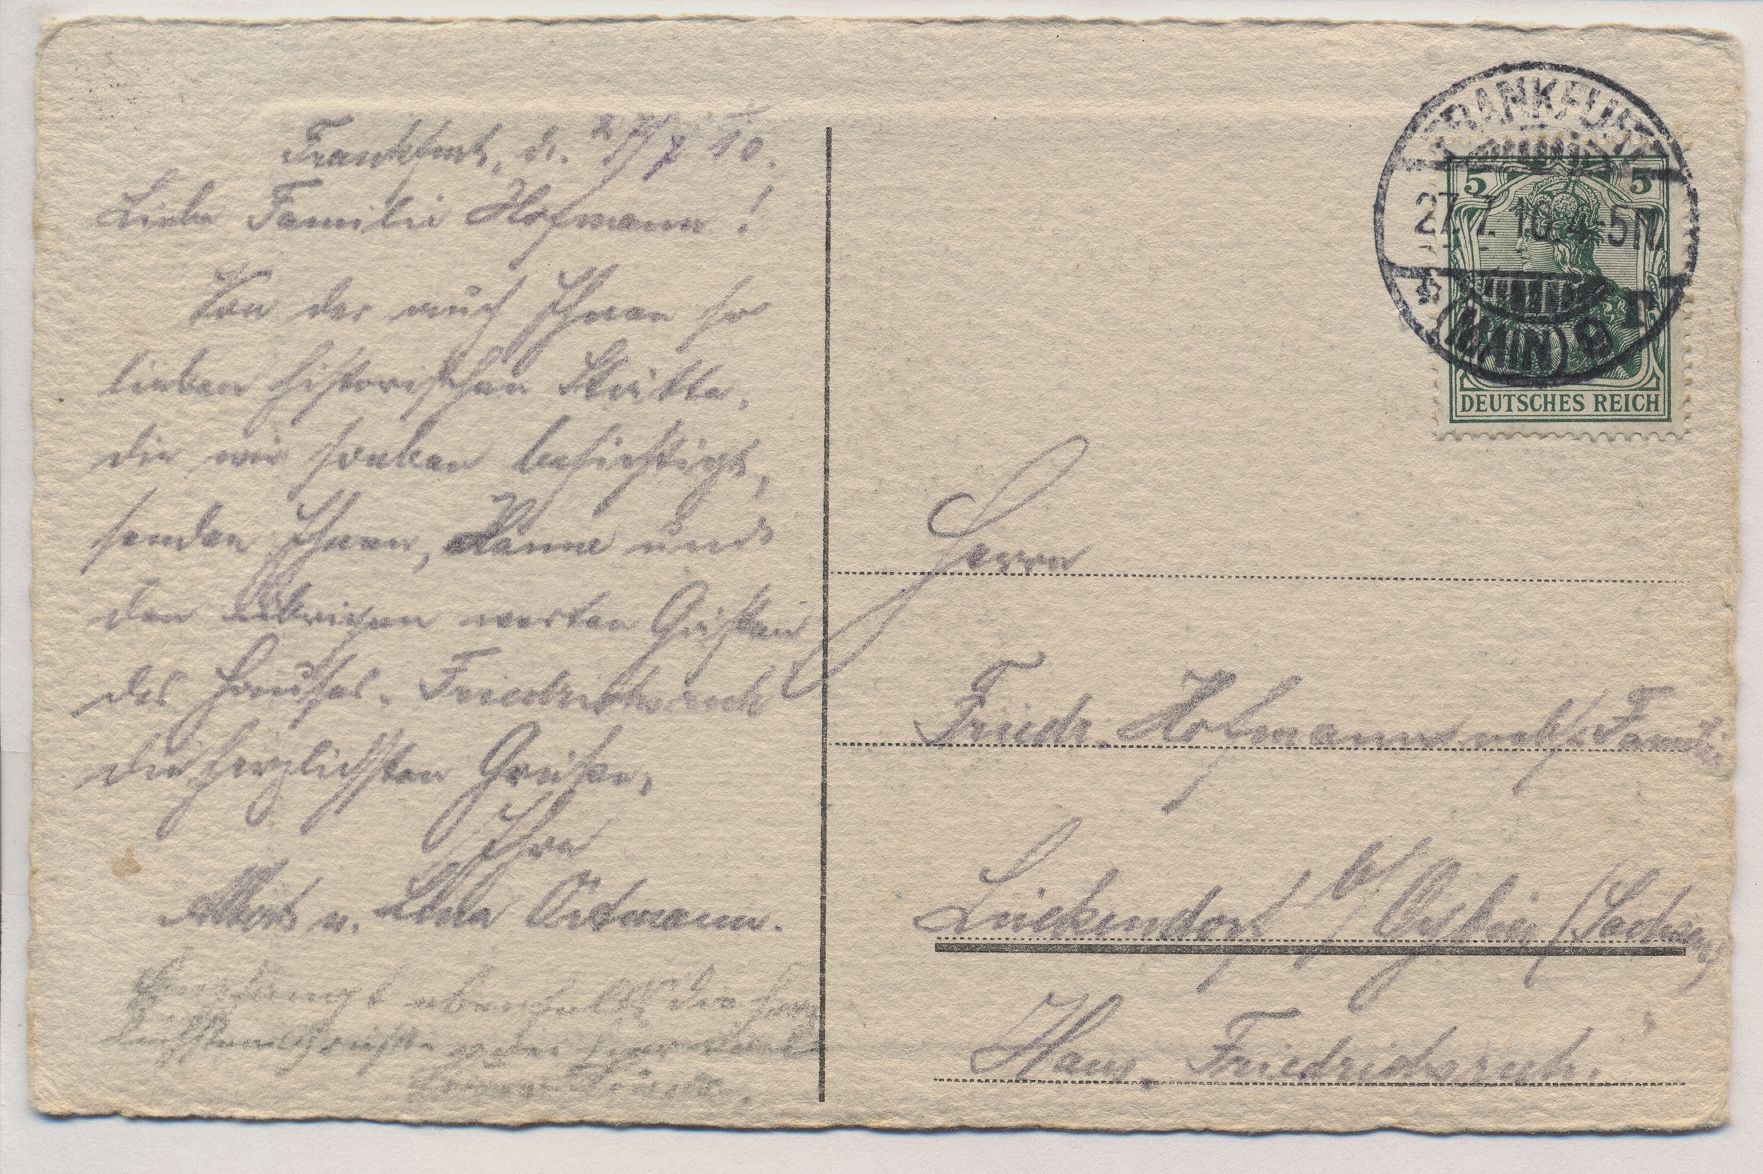 Frankfurt, d. 27/7 10.
Liebe Familie Hofmann!
Von der auch Ihnen so
lieben historischen Stätte,
die wir soeben besichtigt,
senden Ihnen, Hanne und
den übrigen werten Gästen
des Hauses. Friedrichsruh
die herzlichsten Grüße,
Ihre
Albert u. Lina Ortmann.
Empfangt ebenfalls die herz
lichsten Grüße
FRANKFURT
27.7.10. 4-5N.
(MAIN) 9
5 5
DEUTSCHES REICH
Herrn
Friedr. Hofmann nebst Familie
Lückendorf b/ Oybin (Sachsen)
Haus "Friedrichsruh."